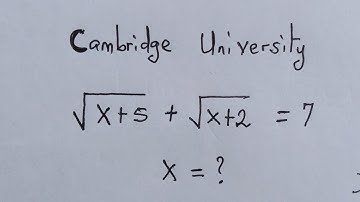 Cambridge University
√x+5 + √x+2 = 7
x = ?